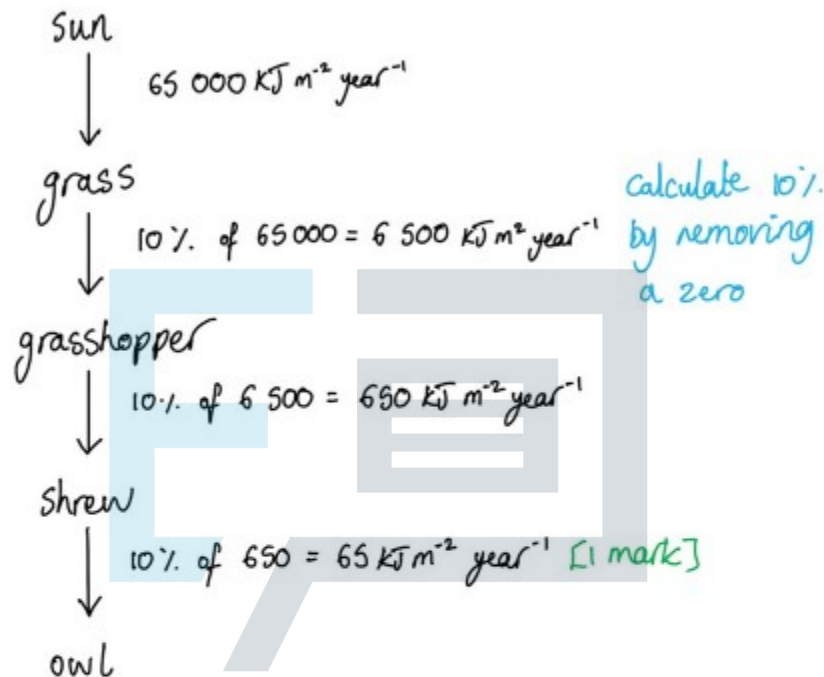 sun
65 000 kJ m⁻² year⁻¹
grass
10% of 65000 = 6 500 kJ m² year⁻¹
calculate 10%
by removing
a zero
grasshopper
10% of 6 500 = 650 kJ m⁻² year⁻¹
shrew
10% of 650 = 65 kJ m⁻² year⁻¹ [1 mark]
owl